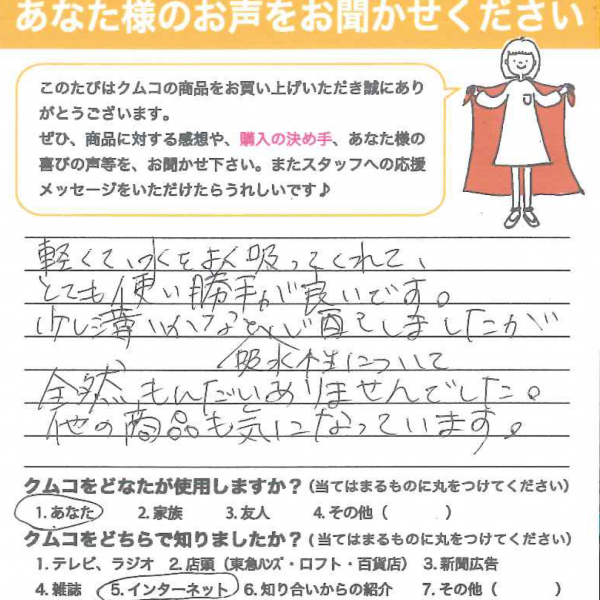 あなた様のお声をお聞かせください
このたびはクムコの商品をお買い上げいただき誠にあり
がとうございます。
ぜひ、商品に対する感想や、購入の決め手、あなた様の
喜びの声等を、お聞かせ下さい。またスタッフへの応援
メッセージをいただけたらうれしいです♪
軽くて、水をよく吸ってくれて、
とても使い勝手が良いです。
少し薄いかなと心配しましたが
吸水性について
全然、もんだいありませんでした。
他の商品も気になっています。
クムコをどなたが使用しますか？（当てはまるものに丸をつけてください）
1. あなた 2. 家族 3. 友人 4. その他（ ）
クムコをどちらで知りましたか？（当てはまるものに丸をつけてください）
1. テレビ、ラジオ 2. 店頭（東急ﾊﾝｽﾞ・ロフト・百貨店） 3. 新聞広告
4. 雑誌 5. インターネット 6. 知り合いからの紹介 7. その他（ ）